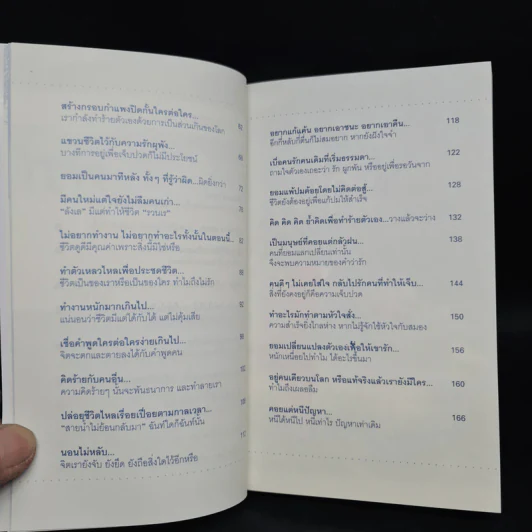 สร้างกรอบกำแพงปิดกั้นใครต่อใคร...
เรากำลังทำร้ายตัวเองด้วยการเป็นส่วนเกินของโลก
แขวนชีวิตไว้กับความรักผุพัง...
บางทีการอยู่เพื่อเจ็บปวดก็ไม่มีประโยชน์
ยอมเป็นคนมาทีหลัง ทั้งๆ ที่รู้ว่าผิด...ผิดยิ่งกว่า
มีคนใหม่แต่ใจยังไม่ลืมคนเก่า...
"ลังเล" มีแต่ทำให้ชีวิต "รวนเร"
ไม่อยากทำงาน ไม่อยากทำอะไรทั้งนั้นในตอนนี้...
ชีวิตดูดีมีคุณค่าเพราะสิ่งนี้มิใช่หรือ
ทำตัวเหลวไหลเพื่อประชดชีวิต...
ชีวิตเป็นของเราหรือเป็นของใคร ทำไมถึงไม่รัก
ทำงานหนักมากเกินไป...
แน่นอนว่าชีวิตมีแต่ได้กับได้ แต่ไม่คุ้มเสีย
เชื่อคำพูดใครต่อใครง่ายเกินไป...
จิตจะตกและตายลงได้กับคำพูดคน
คิดร้ายกับคนอื่น...
ความคิดร้ายๆ นั่นจะพันธนาการ และทำลายเรา
ปล่อยชีวิตไหลเรื่อยเปื่อยตามกาลเวลา...
"สายน้ำไม่ย้อนกลับมา" ฉันใดก็ฉันนั้น
นอนไม่หลับ...
จิตเรายังจับ ยังยึด ยังถือสิ่งใดไว้อีกหรือ
อยากแก้แค้น อยากเอาชนะ อยากเอาคืน... 118
ฉุกกี่หลับกี่ตื่นก็ไม่สมอยาก หากยังฝังใจจำ
เบื่อคนรักคนเดิมที่เริ่มธรรมดา... 122
ถามใจตัวเองเถอะว่า รัก ผูกพัน หรืออยู่เพื่อรอวันจาก
ยอมแพ้ปมด้อยโดยไม่คิดต่อสู้... 128
ชีวิตยังต้องอยู่เพื่อแก้ปมให้สำเร็จ
คิด คิด คิด ย้ำคิดเพื่อทำร้ายตัวเอง...วางแล้วจะว่าง 132
เป็นมนุษย์ที่คอยแต่กลัวฝน... 138
คนที่ยอมแตกเปลี่ยนเท่านั้น
จึงจะพบความหมายของคำว่ารัก
คนดีๆ ไม่เคยใส่ใจ กลับไปรักคนที่ทำให้เจ็บ... 144
สิ่งที่ยังคงอยู่ก็คือความเจ็บปวด
ทำอะไรมักทำตามหัวใจสั่ง... 150
ความสำเร็จยิ่งไกลห่าง หากไม่รู้จักใช้หัวใจกับสมอง
ยอมเปลี่ยนแปลงตัวเองเพื่อให้เขารัก... 156
หนักเหนื่อยไปทำไม ได้อะไรขึ้นมา
อยู่คนเดียวบนโลก หรือแท้จริงแล้วเรายังมีใคร... 160
ทำไมถึงเผลอลืม
คอยแต่หนีปัญหา... 166
หนีได้หนีไป หนีเท่าไร ปัญหาเท่าเดิม